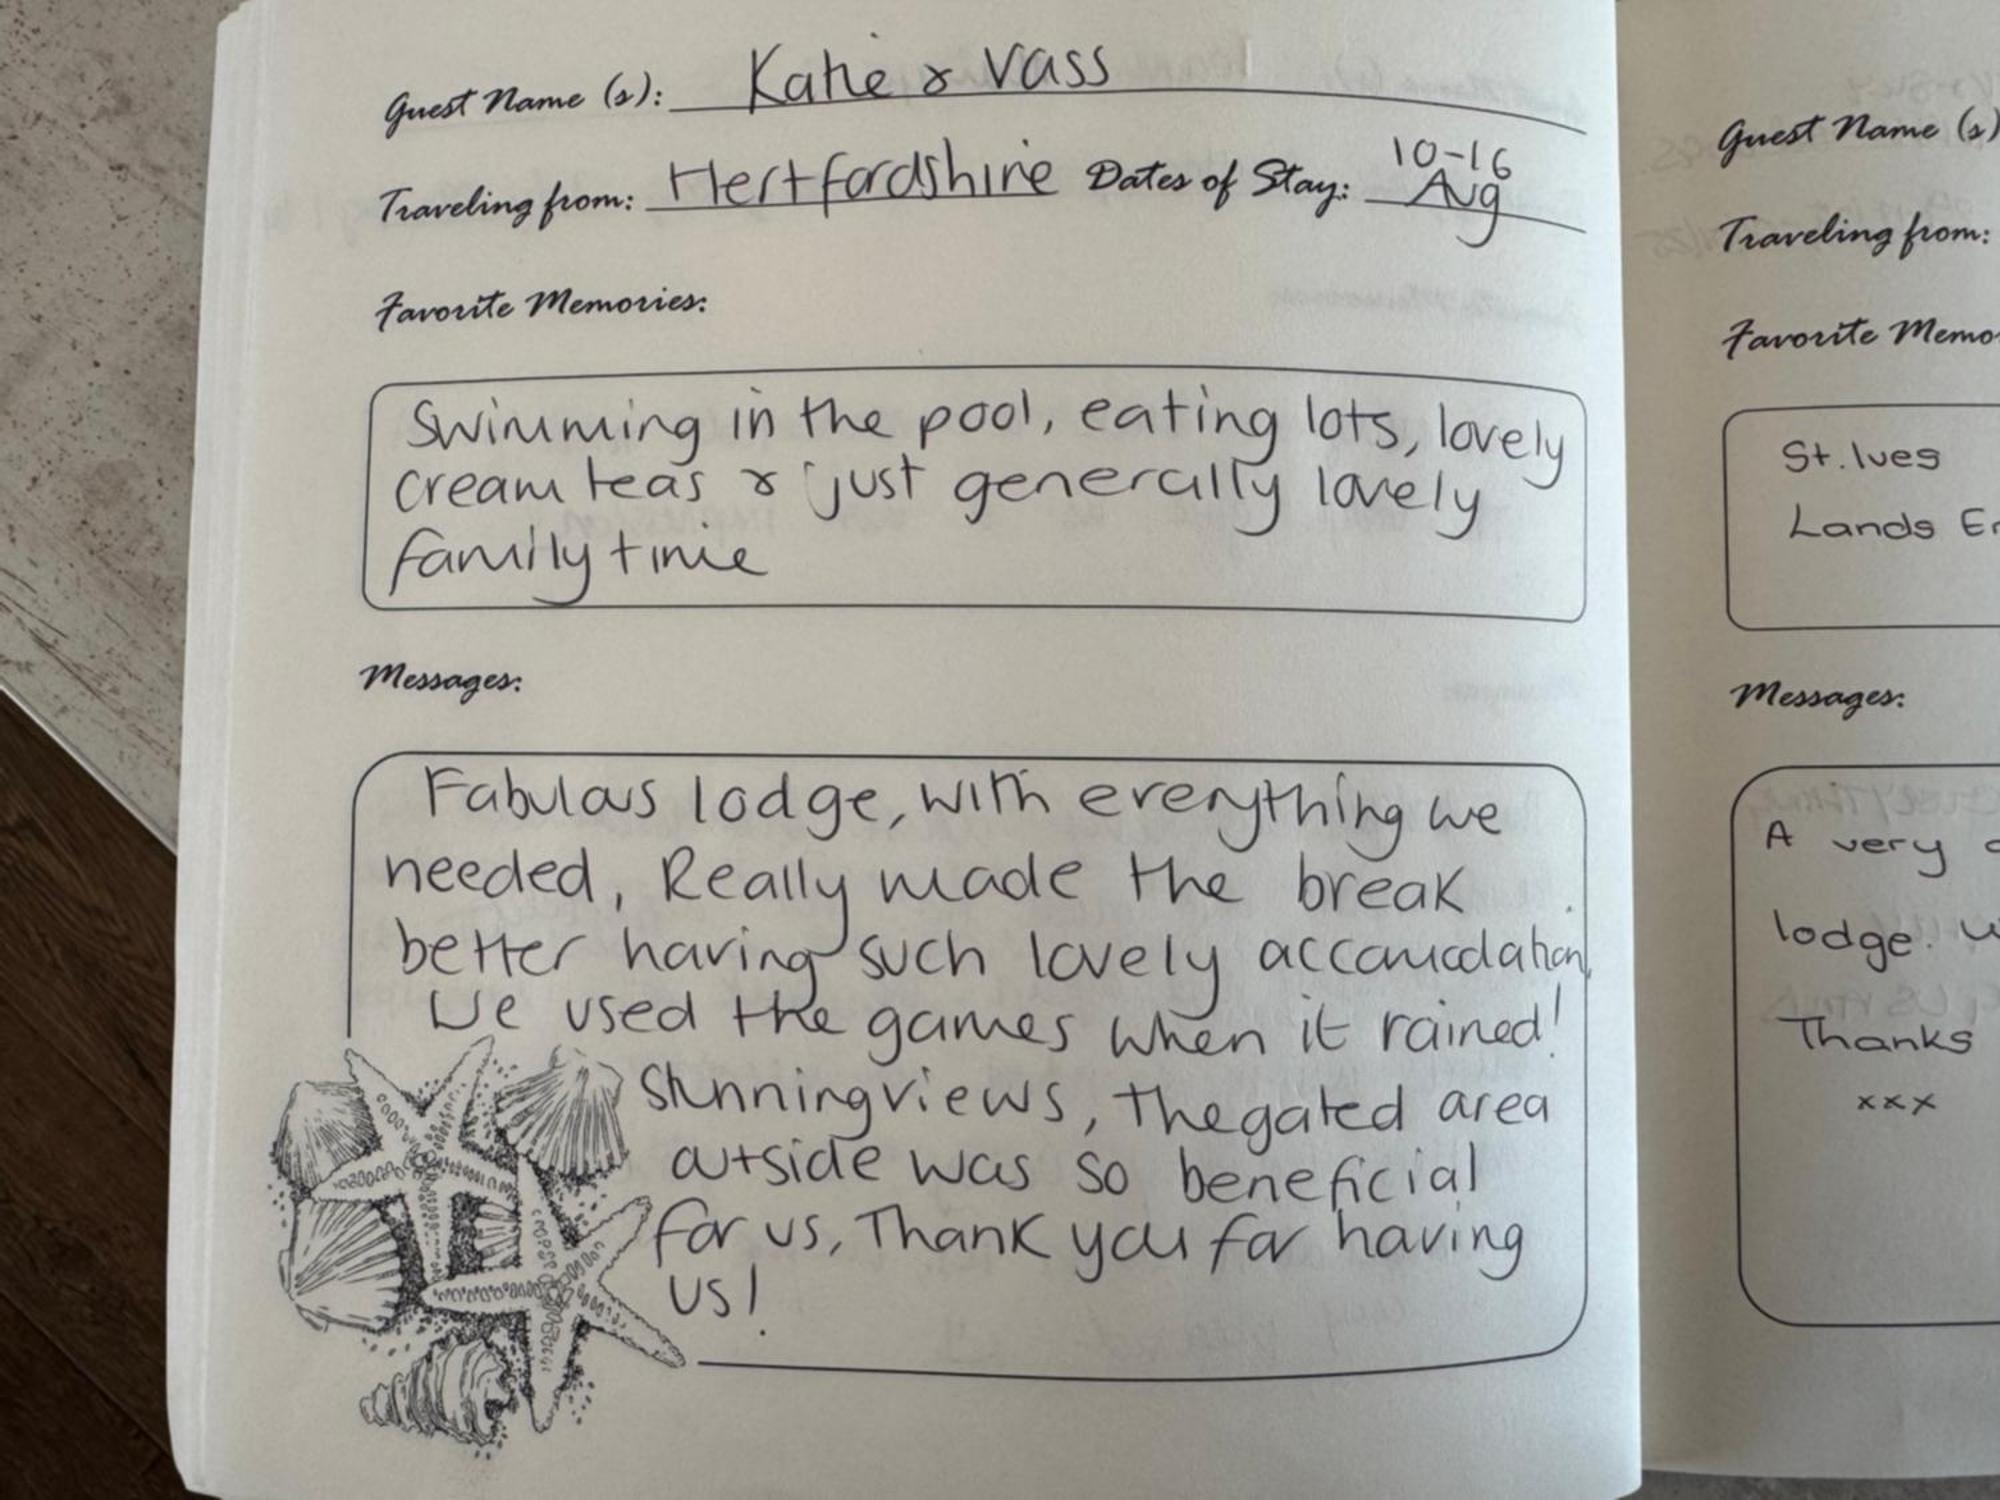 Guest Name (s): Katie & Vass
Traveling from: Hertfordshire Dates of Stay: 10-16 Aug
Favorite Memories:
Swimming in the pool, eating lots, lovely
cream teas & just generally lovely
family time
Messages:
Fabulous lodge, with everything we
needed, Really made the break
better having such lovely accomodation,
We used the games when it rained!
Stunning views, the gated area
outside was so beneficial
for us, Thank you for having
us!
Guest Name (s)
Traveling from:
Favorite Memo
St. Ives
Lands
Messages:
A very
lodge.
Thanks
xxx